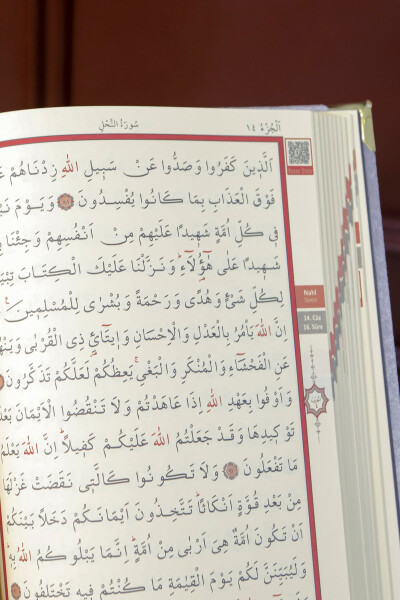 سُورَةُ النَّحْلِ
اَلْجُزْءُ ١٤
اَلَّذ۪ينَ كَفَرُوا وَصَدُّوا عَنْ سَب۪يلِ اللّٰهِ زِدْنَاهُمْ
فَوْقَ الْعَذَابِ بِمَا كَانُوا يُفْسِدُونَ ٨٨ وَيَوْمَ
ف۪ي كُلِّ اُمَّةٍ شَه۪يدًا عَلَيْهِمْ مِنْ اَنْفُسِهِمْ وَجِئْنَا
شَه۪يدًا عَلٰى هٰٓؤُ۬لَٓاءِۜ وَنَزَّلْنَا عَلَيْكَ الْكِتَابَ
لِكُلِّ شَيْءٍ وَهُدًى وَرَحْمَةً وَبُشْرٰى لِلْمُسْلِم۪ينَ
اِنَّ اللّٰهَ يَأْمُرُ بِالْعَدْلِ وَالْاِحْسَانِ وَا۪يتَٓائِ ذِي الْقُرْبٰى
عَنِ الْفَحْشَٓاءِ وَالْمُنْكَرِ وَالْبَغْيِۚ يَعِظُكُمْ لَعَلَّكُمْ تَذَكَّرُونَ
وَاَوْفُوا بِعَهْدِ اللّٰهِ اِذَا عَاهَدْتُمْ وَلَا تَنْقُضُوا الْاَيْمَانَ
تَوْك۪يدِهَا وَقَدْ جَعَلْتُمُ اللّٰهَ عَلَيْكُمْ كَف۪يلًاۜ اِنَّ اللّٰهَ
مَا تَفْعَلُونَ ٩١ وَلَا تَكُونُوا كَالَّت۪ي نَقَضَتْ غَزْلَهَا
مِنْ بَعْدِ قُوَّةٍ اَنْكَاثًاۜ تَتَّخِذُونَ اَيْمَانَكُمْ دَخَلًا بَيْنَكُمْ
اَنْ تَكُونَ اُمَّةٌ هِيَ اَرْبٰى مِنْ اُمَّةٍۜ اِنَّمَا يَبْلُوكُمُ اللّٰهُ بِه۪
وَلَيُبَيِّنَنَّ لَكُمْ يَوْمَ الْقِيٰمَةِ مَا كُنْتُمْ ف۪يهِ تَخْتَلِفُونَ
Nahl
Sûresi
14. Cüz
16. Sûre